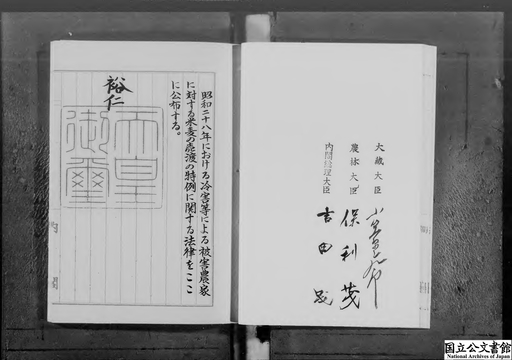 昭和二十八年における冷害等による被害農家
に対する米麦の売渡の特例に関する法律をここ
に公布する。
裕仁
天皇
御璽
大蔵大臣
農林大臣 保利茂
内閣総理大臣 吉田茂
内閣
国立公文書館
National Archives of Japan